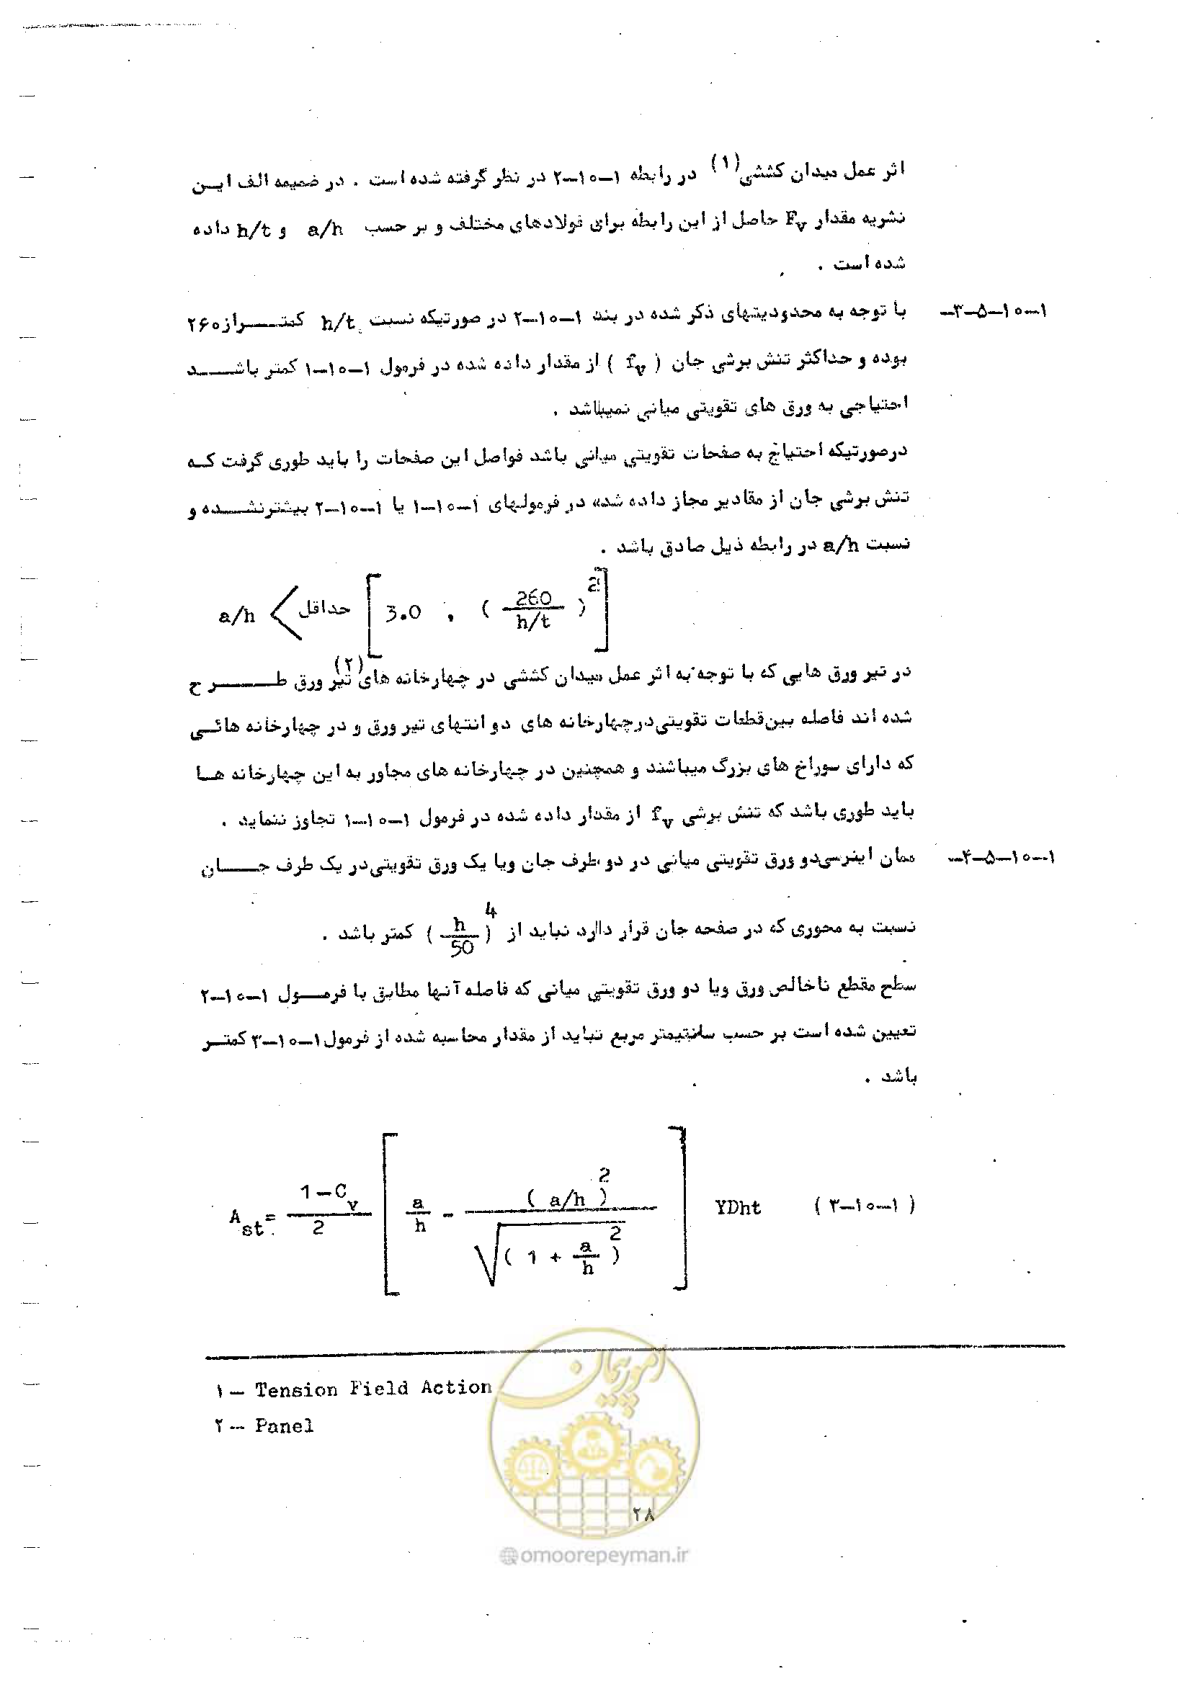 اثر عمل میدان کششی(۱) در رابطه ۱-۱۰-۲ در نظر گرفته شده است . در ضمیمه الف ایـن
نشریه مقدار Fv حاصل از این رابطه برای فولادهای مختلف و بر حسب a/h و h/t داده
شده است .
۱-۱۰-۵-۳- با توجه به محدودیتهای ذکر شده در بند ۱-۱۰-۲ در صورتیکه نسبت h/t کمتـــر از ۲۶۰
بوده و حداکثر تنش برشی جان ( fv ) از مقدار داده شده در فرمول ۱-۱۰-۱ کمتر باشـــد
احتیاجی به ورق های تقویتی میانی نمیباشد .
درصورتیکه احتیاج به صفحات تقویتی میانی باشد فواصل این صفحات را باید طوری گرفت کـه
تنش برشی جان از مقادیر مجاز داده شده در فرمولهای ۱-۱۰-۱ یا ۱-۱۰-۲ بیشترنشـــده و
نسبت a/h در رابطه ذیل صادق باشد .
a/h < حداقل [ 3.0 , ( 260 / h/t )^2 ]
در تیر ورق هایی که با توجه به اثر عمل میدان کششی در چهارخانه های(۲) تیر ورق طـــــرح
شده اند فاصله بین قطعات تقویتی درچهارخانه های دو انتهای تیر ورق و در چهارخانه هائـی
که دارای سوراخ های بزرگ میباشند و همچنین در چهارخانه های مجاور به این چهارخانه هـا
باید طوری باشد که تنش برشی fv از مقدار داده شده در فرمول ۱-۱۰-۱ تجاوز ننماید .
۱-۱۰-۵-۴- ممان اینرسی دو ورق تقویتی میانی در دو طرف جان ویا یک ورق تقویتی در یک طرف جـــان
نسبت به محوری که در صفحه جان قرار دارد نباید از ( h/50 )^4 کمتر باشد .
سطح مقطع ناخالص ورق ویا دو ورق تقویتی میانی که فاصله آنها مطابق با فرمـــول ۱-۱۰-۲
تعیین شده است بر حسب سانتیمتر مربع نباید از مقدار محاسبه شده از فرمول ۱-۱۰-۳ کمتـر
باشد .
Ast = (1-Cv)/2 [ a/h - (a/h)^2 / √(1 + a/h)^2 ] YDht (۱-۱۰-۳)
۱- Tension Field Action
۲- Panel
امور پیمان
۲۸
@omoorepeyman.ir